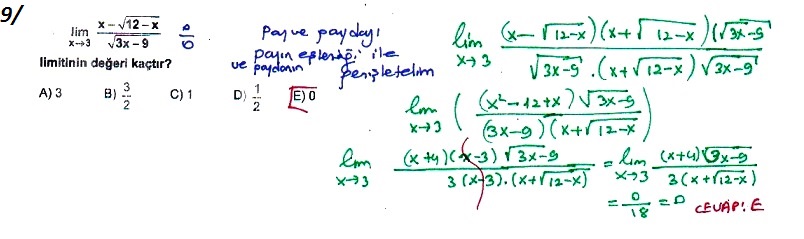 9/
lim x→3 x-√12-x / √3x-9 0/0
limitinin değeri kaçtır?
A) 3 B) 3/2 C) 1 D) 1/2 E) 0
Pay ve paydayı
payın eşleniği ile
ve paydanın
genişletelim
lim x→3 (x-√12-x)(x+√12-x)(√3x-9) / √3x-9 . (x+√12-x) √3x-9
lim x→3 ( (x²-12+x) √3x-9 / (3x-9)(x+√12-x) )
lim x→3 (x+4)(x-3) √3x-9 / 3(x-3).(x+√12-x) = lim x→3 (x+4)√3x-9 / 3(x+√12-x)
= 0/18 = 0 CEVAP: E